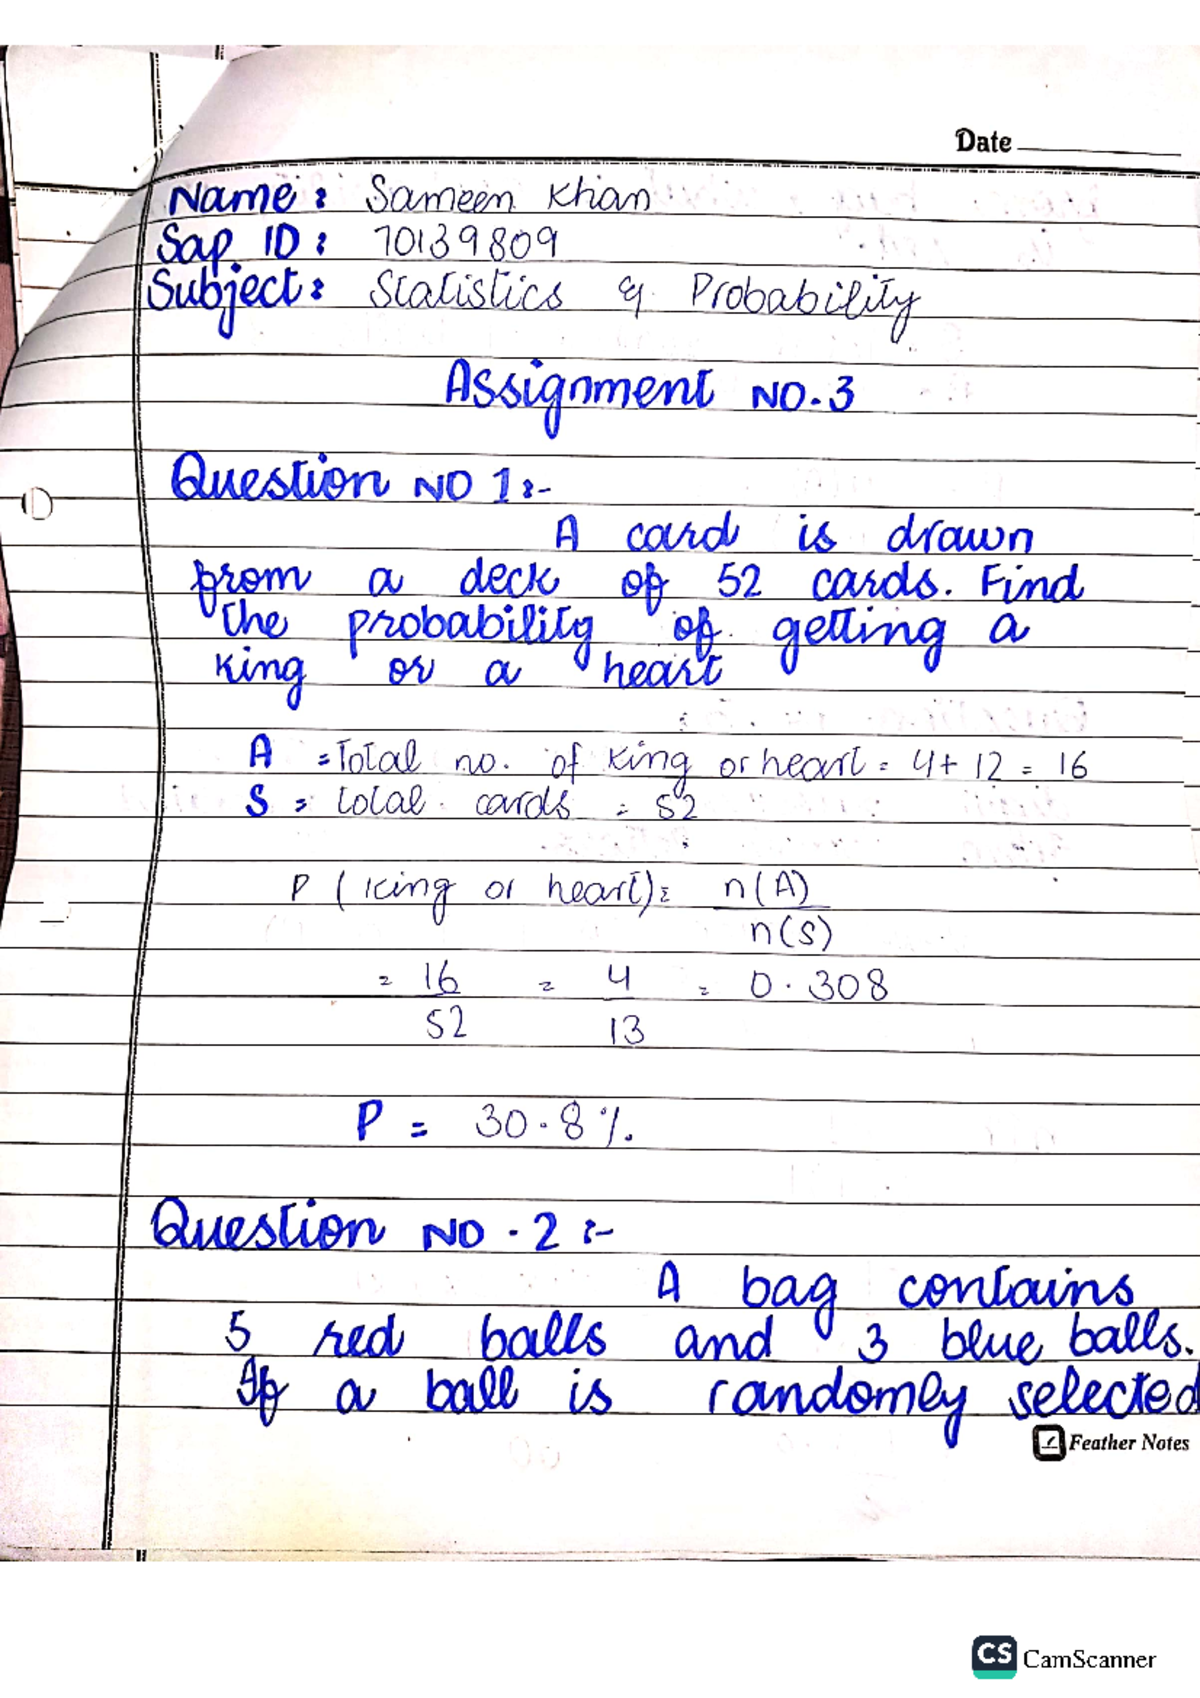 Date
Name: Sameen Khan
Sap ID: 70139809
Subject: Statistics & Probability
Assignment NO.3
Question NO 1:-
A card is drawn
from a deck of 52 cards. Find
the probability of getting a
king or a heart
A = Total no. of king or heart = 4+12 = 16
S = total cards = 52
P (king or heart) = n(A)
n(S)
= 16 = 4 = 0.308
52 13
P = 30.8%.
Question NO.2:-
A bag contains
5 red balls and 3 blue balls.
If a ball is randomly selected
Feather Notes
CS CamScanner